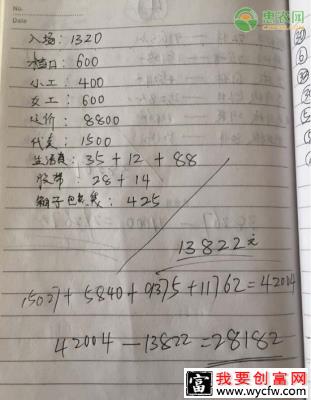 No.
Date
惠农网
入场:1320
档口:600
小工:400
女工:600
运价:8800
代卖:1500
生活费:35+12+88
胶带:28+14
箱子包装袋:425
13822元
15027+5840+9375+11762=42004
42004-13822=28182
富 我要创富网
www.wycfw.com